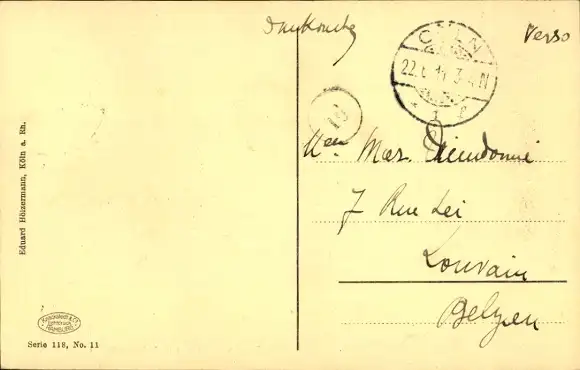 Verso
CÖLN
22.6.14. 3-4N
* 1 f
19
Mr. Dieudonné
7 Rue Lei
Louvain
Belgien
Eduard Hölzermann, Köln a. Rh.
HAMBURG
Serie 118, No. 11